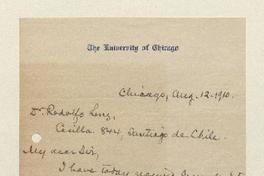 The University of Chicago
Chicago, Aug. 12-1910.
Dr. Rodolfo Lenz,
Casilla 844, Santiago de Chile.
My dear Sir,
I have today received